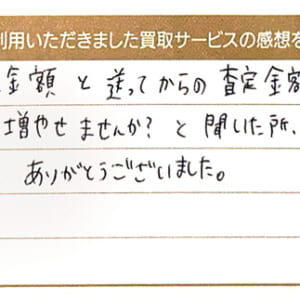 利用いただきました買取サービスの感想を
金額と送ってからの査定金額
増やせませんか?と聞いた所、
ありがとうございました。